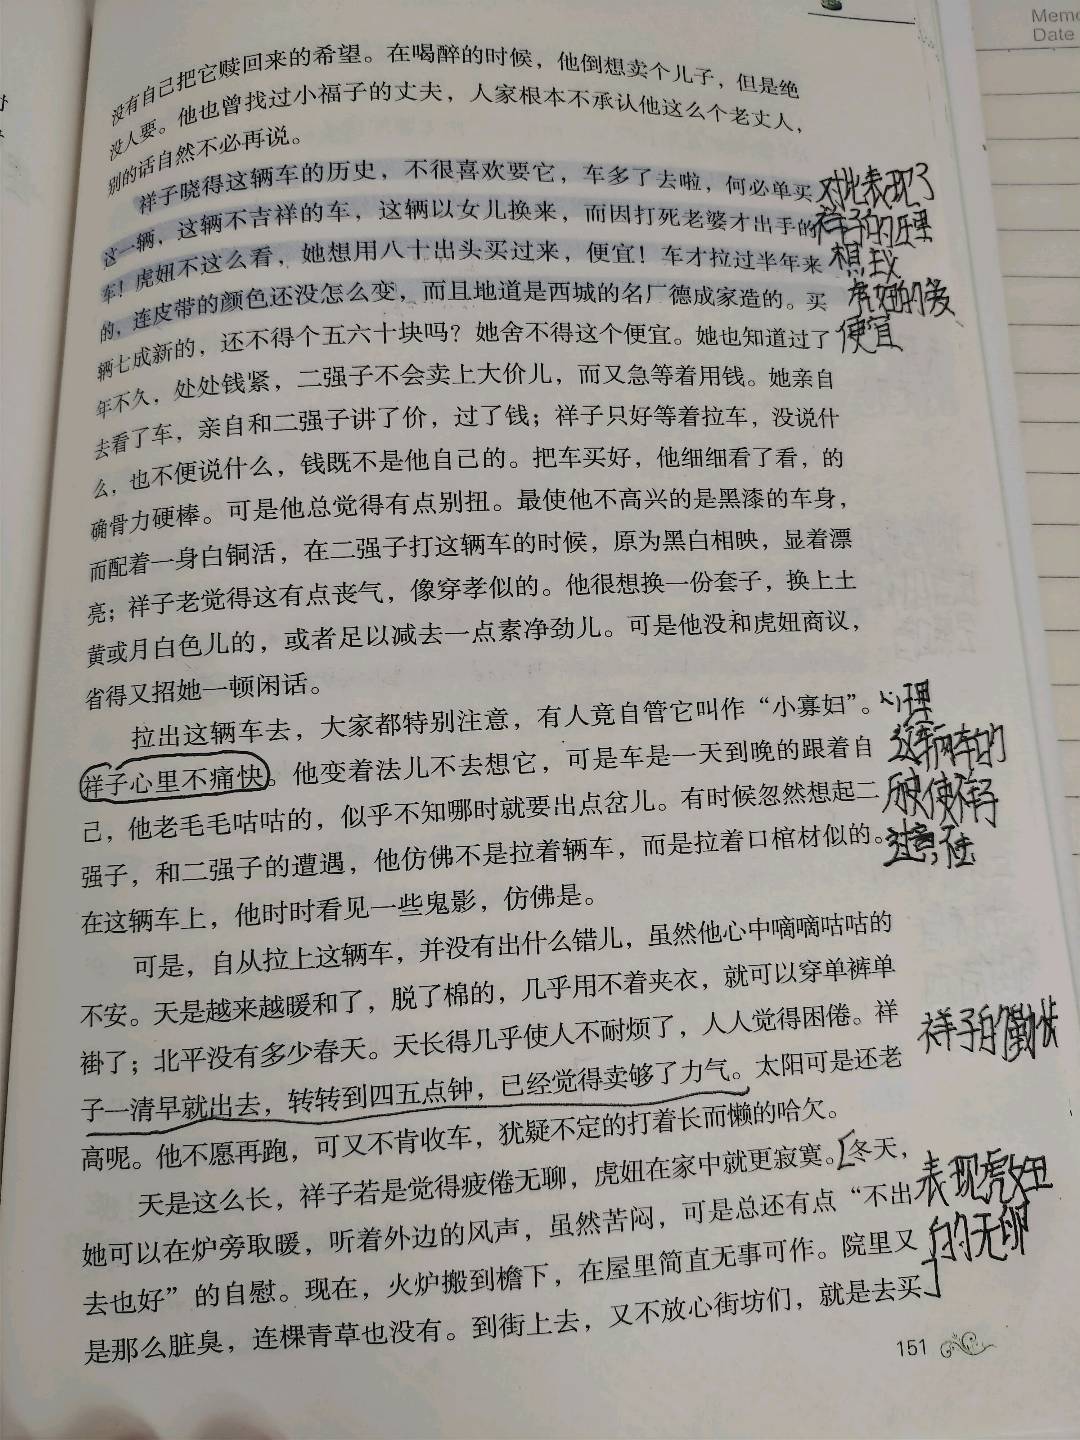 Memo
Date
没有自己把它赎回来的希望。在喝醉的时候，他倒想卖个儿子，但是绝
没人要。他也曾找过小福子的丈夫，人家根本不承认他这么个老丈人，
别的话自然不必再说。
祥子晓得这辆车的历史，不很喜欢要它，车多了去啦，何必单买
这一辆，这辆不吉祥的车，这辆以女儿换来，而因打死老婆才出手的
车！虎妞不这么看，她想用八十出头买过来，便宜！车才拉过半年来
的，连皮带的颜色还没怎么变，而且地道是西城的名厂德成家造的。买
辆七成新的，还不得个五六十块吗？她舍不得这个便宜。她也知道过了
年不久，处处钱紧，二强子不会卖上大价儿，而又急等着用钱。她亲自
去看了车，亲自和二强子讲了价，过了钱；祥子只好等着拉车，没说什
么，也不便说什么，钱既不是他自己的。把车买好，他细细看了看，的
确骨力硬棒。可是他总觉得有点别扭。最使他不高兴的是黑漆的车身，
而配着一身白铜活，在二强子打这辆车的时候，原为黑白相映，显着漂
亮；祥子老觉得这有点丧气，像穿孝似的。他很想换一份套子，换上土
黄或月白色儿的，或者足以减去一点素净劲儿。可是他没和虎妞商议，
省得又招她一顿闲话。
拉出这辆车去，大家都特别注意，有人竟自管它叫作“小寡妇”。
祥子心里不痛快。他变着法儿不去想它，可是车是一天到晚的跟着自
己，他老毛毛咕咕的，似乎不知哪时就要出点岔儿。有时候忽然想起二
强子，和二强子的遭遇，他仿佛不是拉着辆车，而是拉着口棺材似的。
在这辆车上，他时时看见一些鬼影，仿佛是。
可是，自从拉上这辆车，并没有出什么错儿，虽然他心中嘀嘀咕咕的
不安。天是越来越暖和了，脱了棉的，几乎用不着夹衣，就可以穿单裤单
褂了；北平没有多少春天。天长得几乎使人不耐烦了，人人觉得困倦。祥
子一清早就出去，转转到四五点钟，已经觉得卖够了力气。太阳可是还老
高呢。他不愿再跑，可又不肯收车，犹疑不定的打着长而懒的哈欠。
天是这么长，祥子若是觉得疲倦无聊，虎妞在家中就更寂寞。冬天，
她可以在炉旁取暖，听着外边的风声，虽然苦闷，可是总还有点“不出
去也好”的自慰。现在，火炉搬到檐下，在屋里简直无事可作。院里又
是那么脏臭，连棵青草也没有。到街上去，又不放心街坊们，就是去买
151
对比表现了
祥子的理
想主义
虎妞的爱
便宜
心理
这辆车的
历史使祥子
祥子的勤快
表现虎妞
的无聊